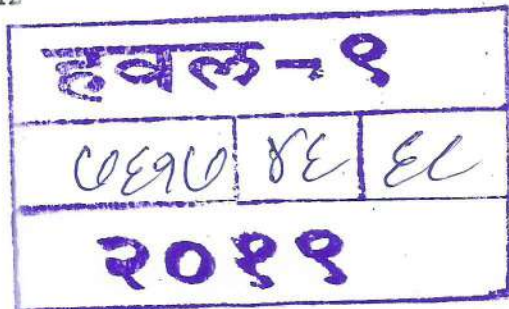 हवल-१
७६१७ ४६ ६८
२०११